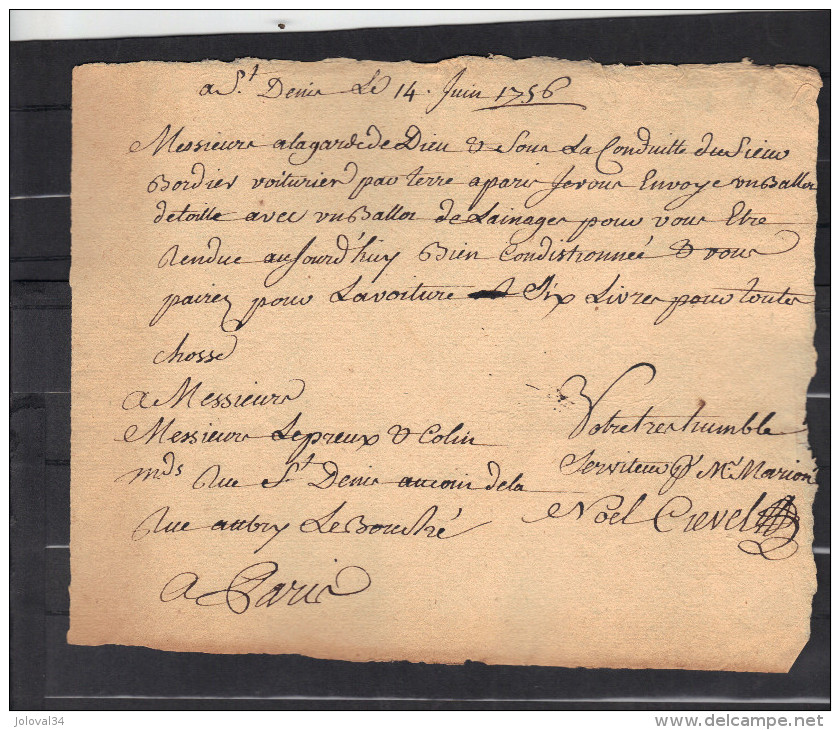 a S.t Denis Le 14. Juin 1756
Messieurs alagardede Dieu & Sous La Conduitte du Sieur
Bordier voiturier par terre aparis Jevous Envoye un Ballot
detoille avec un Ballot de Lainages pour vous Etre
Rendue aujourd'huy Bien Condistionneé & vous
pairez pour Lavoiture Six Livres pour toutes
chosse
a Messieurs
Messieurs Lepreux & Colin
mds Rue S.t Denis aucoin dela
Rue aubry LeBouché
a Paris
Votretreshumble
Serviteur p M.r Marion
Noel Crevel
joloval34
www.delcampe.net